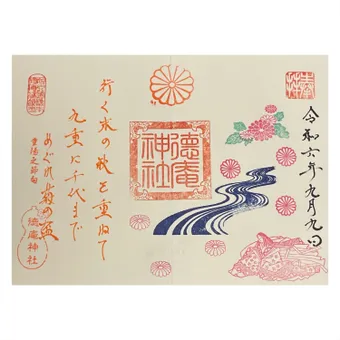 奉拝
令和六年九月九日
徳庵神社
行く水の秋を重ねて
九重に千代まで
めぐれ菊の盃
重陽之節句
徳庵神社